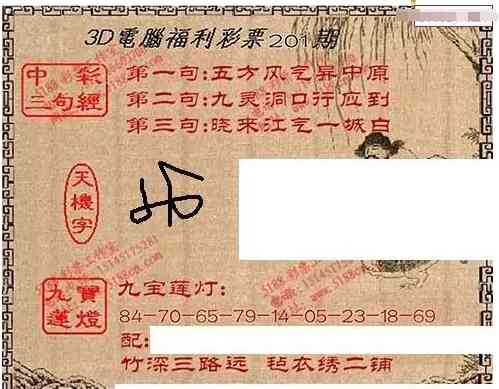 3D電腦福利彩票201期
中彩三句經
第一句:五方风气异中原
第二句:九灵洞口行应到
第三句:晓来江气一城白
天機字
九寶蓮燈
九宝莲灯:
84-70-65-79-14-05-23-18-69
配:
竹深三路远 毡衣绣二铺